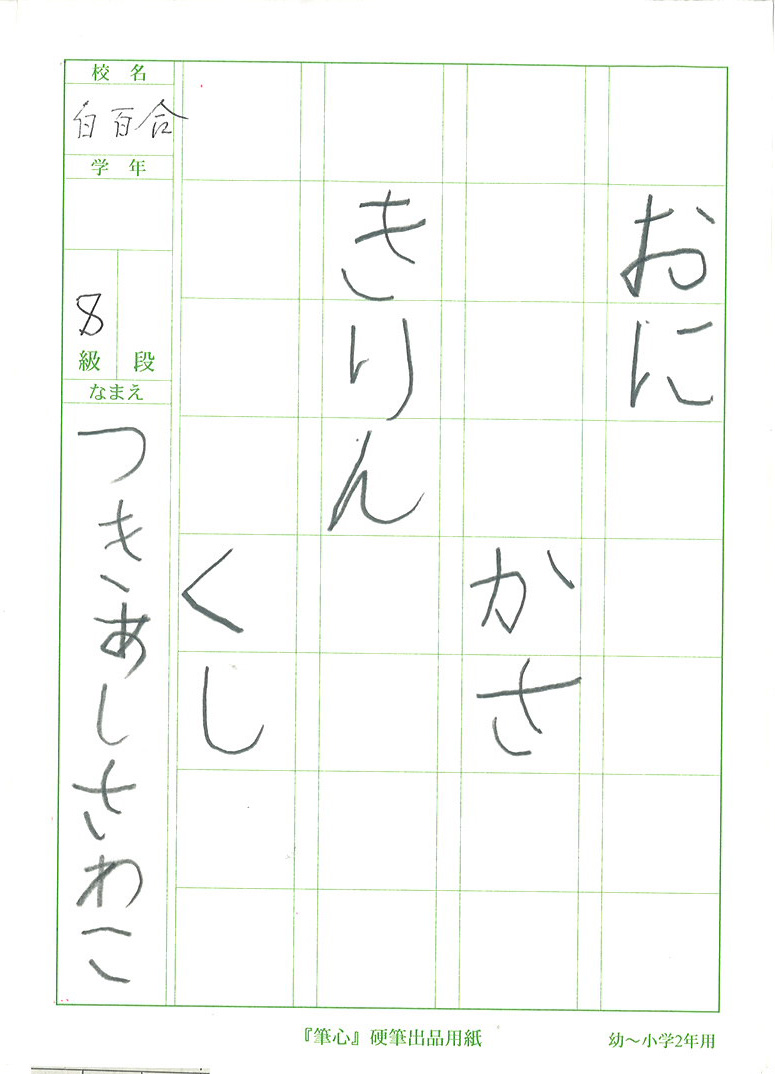 おに
かさ
きりん
くし
校名
白百合
学年
8
級 段
なまえ
つきあしさわこ
『筆心』硬筆出品用紙
幼〜小学2年用